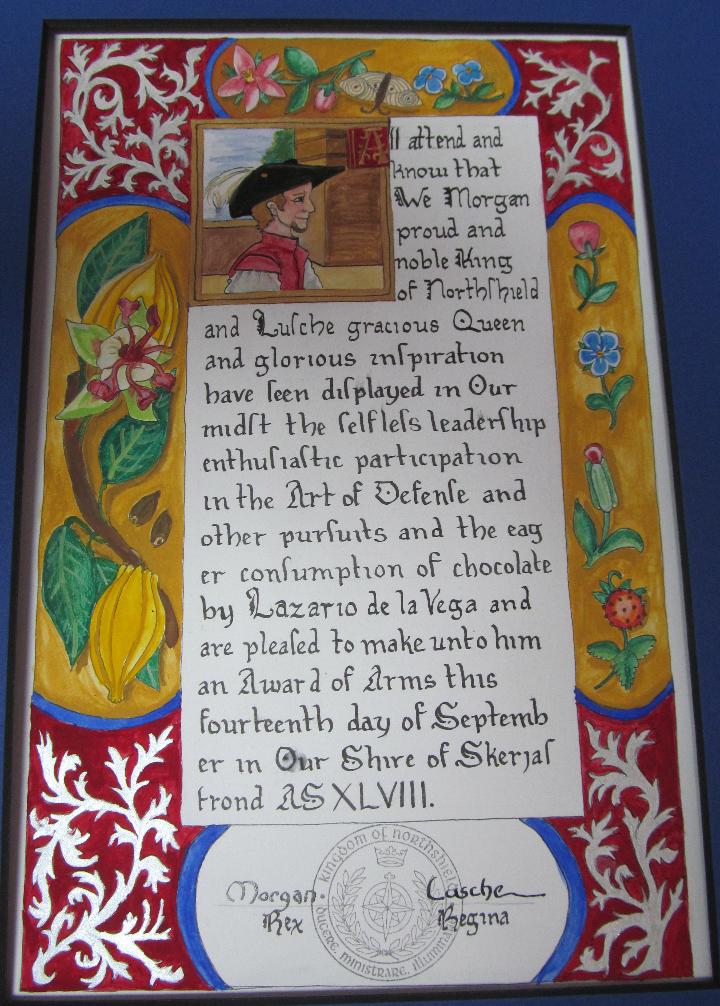 All attend and
know that
We Morgan
proud and
noble King
of Northſhield
and Luſche gracious Queen
and glorious inſpiration
have ſeen diſplayed in Our
midſt the ſelfleſs leaderſhip
enthuſiaſtic participation
in the Art of Defenſe and
other purſuits and the eag
er conſumption of chocolate
by Lazario de la Vega and
are pleaſed to make unto him
an Award of Arms this
fourteenth day of Septemb
er in Our Shire of Skerjaſ
trond AS XLVIII.
Kingdom of Northshield
Ducere, Ministrare, Illuminare
Morgan Luſche
Rex Regina